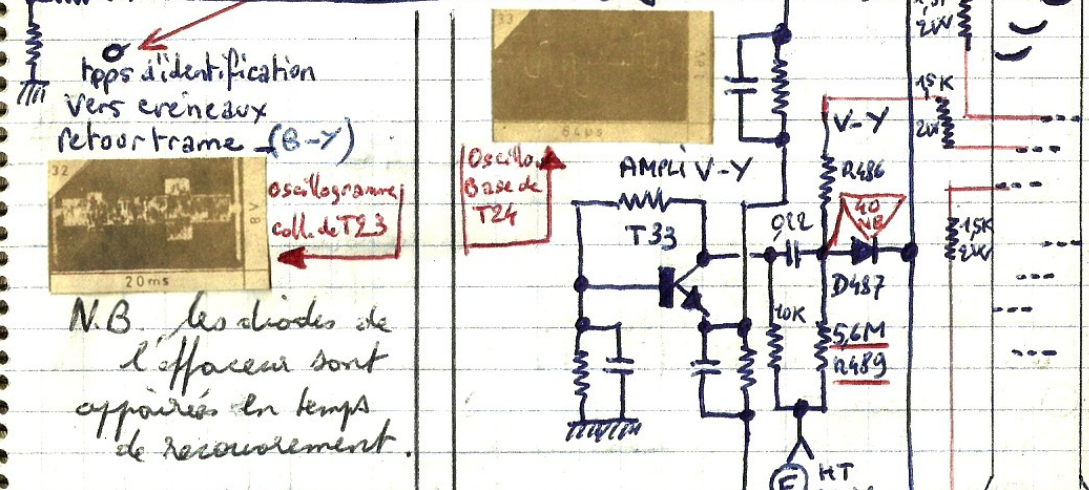 tops d'identification
vers créneaux
retour trame (B-Y)
32
8V
20ms
oscillogramme
coll. de T23
N.B. les diodes de
l'effaceur sont
appairées en temps
de recouvrement.
33
64µs
Oscillo
Base de
T24
AMPLI V-Y
T33
0,22
10K
V-Y
R486
40
NB
D487
5,6M
R489
E
HT
2W
15K
2W
1,5K
2W